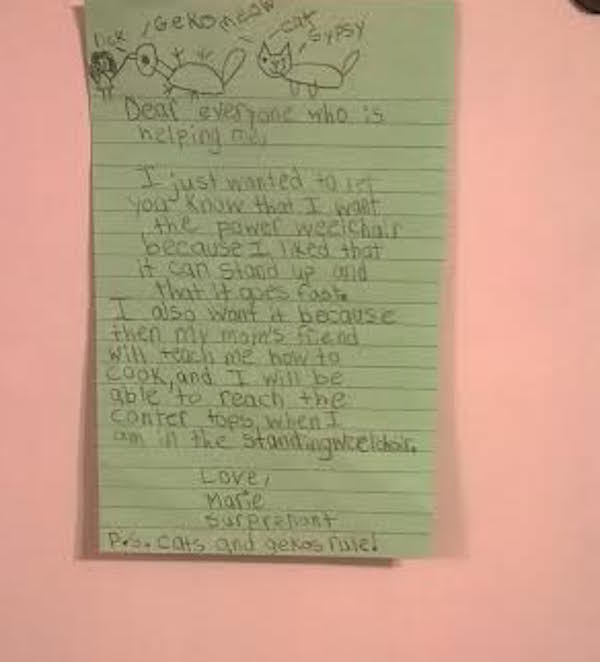 lick
Geko meow
cat
Gypsy
Dear everyone who is
helping me,
I just wanted to let
you know that I want
the power weelchair
because I liked that
it can stand up and
that it goes fast.
I also want it because
then my mom's friend
will teach me how to
cook, and I will be
able to reach the
conter tops, when I
am in the standingweelchair.
Love,
Marie
Surprenant
P.S. cats and gekos rule!